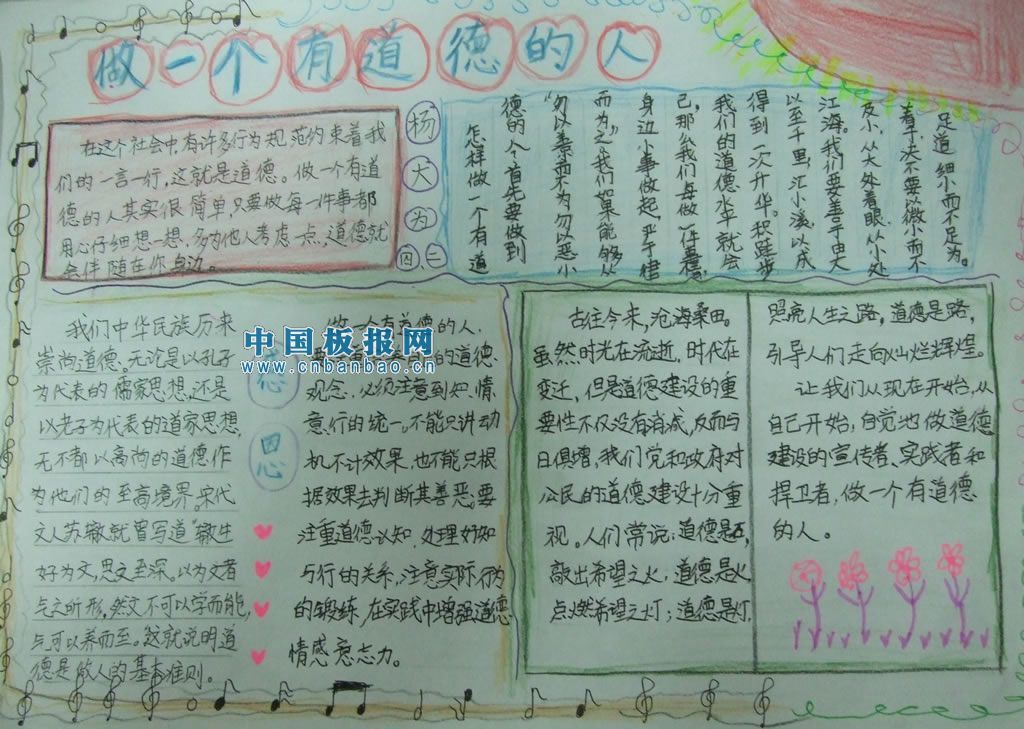 做一个有道德的人
在这个社会中,有许多行为规范约束着我
们的一言一行,这就是道德。做一个有道
德的人其实很简单,只要做每一件事都
用心仔细想一想,多为他人考虑一点,道德就
会伴随在你身边。
杨大为
四、二
怎样做一个有道
德的人首先要做到
“勿以善而不为勿以恶小
而为之”我们如果能够从
身边小事做起,严于律
己。那么我们每做一件善事,
我们的道德水平就会
得到一次升华。积跬步
以至千里,汇小溪以成
江海。我们要善于由大
及小,从大处着眼,从小处
着手,决不要以微小而不
足道,细小而不足为。
我们中华民族历来
崇尚道德。无论是以孔子
为代表的儒家思想,还是
以老子为代表的道家思想,
无不都以高尚的道德作
为他们的至高境界。宋代
文人苏辙就曾写道“辙生
好为文,思文至深。以为文者
气之所形,然文不可以学而能,
气可以养而至。这就说明道
德是做人的基本准则。
心
思
中国板报网
www.cnbanbao.cn
做一个有道德的人,
的道德
观念,必须注意到知、情、
意、行的统一。不能只讲动
机不计效果,也不能只根
据效果去判断其善恶。要
注重道德认知,处理好知
与行的关系,注意实际行为
的锻练,在实践中增强道德
情感意志力。
古往今来,沧海桑田。
虽然时光在流逝,时代在
变迁,但是道德建设的重
要性不仅没有消减,反而与
日俱增,我们党和政府对
公民的道德建设十分重
视。人们常说:道德是石,
敲出希望之火;道德是火,
点燃希望之灯;道德是灯,
照亮人生之路,道德是路,
引导人们走向灿烂辉煌。
让我们从现在开始,从
自己开始,自觉地做道德
建设的宣传者、实践者和
捍卫者,做一个有道德
的人。